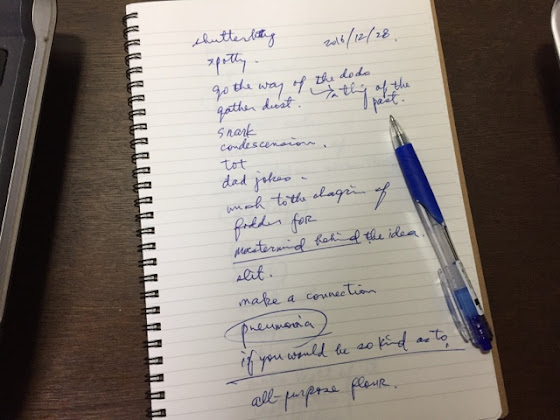 shutterbug 2016/12/28.
spotty.
go the way of the dodo
gather dust. → a thing of the
past.
snark
condescension.
tot
dad jokes.
much to the chagrin of
fodder for
mastermind behind the idea.
slit.
make a connection
pneumonia
if you would be so kind as to
all-purpose flour.